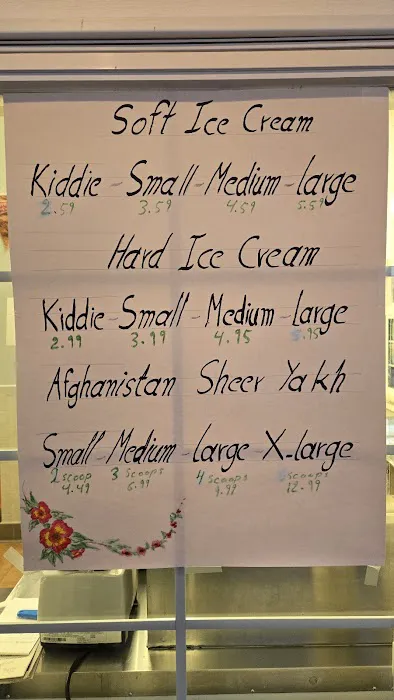 Soft Ice Cream
Kiddie - Small - Medium - large
2.59 3.59 4.59 5.59
Hard Ice Cream
Kiddie - Small - Medium - large
2.99 3.99 4.95 5.95
Afghanistan Sheer Yakh
Small - Medium - large - X-large
scoop 3 scoops 4 scoops scoops
4.49 6.99 9.99 12.99